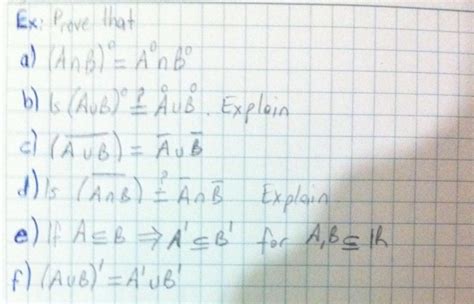 Ex: Prove that
a) (A∩B)° = A°∩B°
b) Is (A∪B)° ≟ A°∪B°. Explain
c) (\overline{A∪B}) = \overline{A}∪\overline{B}
d) Is (\overline{A∩B}) ≟ \overline{A}∩\overline{B} Explain
e) If A⊆B ⇒ A'⊆B' for A,B⊆ℝ
f) (A∪B)' = A'∪B'